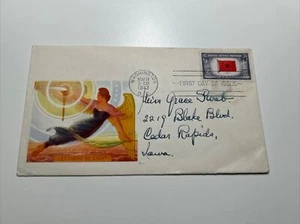 WASHINGTON
NOV 9
1943
FIRST DAY OF ISSUE
Miss Grace
2219 Blake Blvd.
Cedar Rapids,
Iowa.